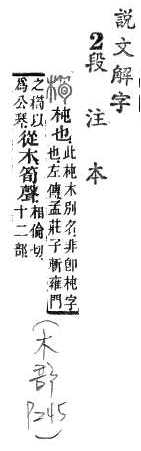 說文解字
2段注本
橁 杶也 此杶木別名非卽杶字也左傳孟莊子斬雍門
之橁以爲公琴 從木筍聲 相倫切十二部
(木部 P245)